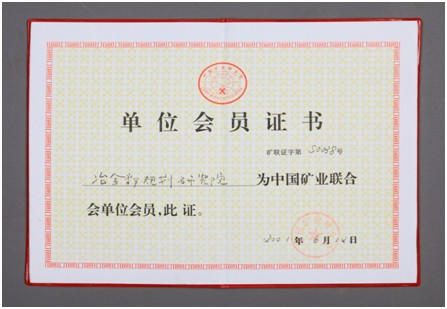 单位会员证书
矿联证字第 号
冶金 规划研究院 为中国矿业联合
会单位会员,此证。
2001年6月 日